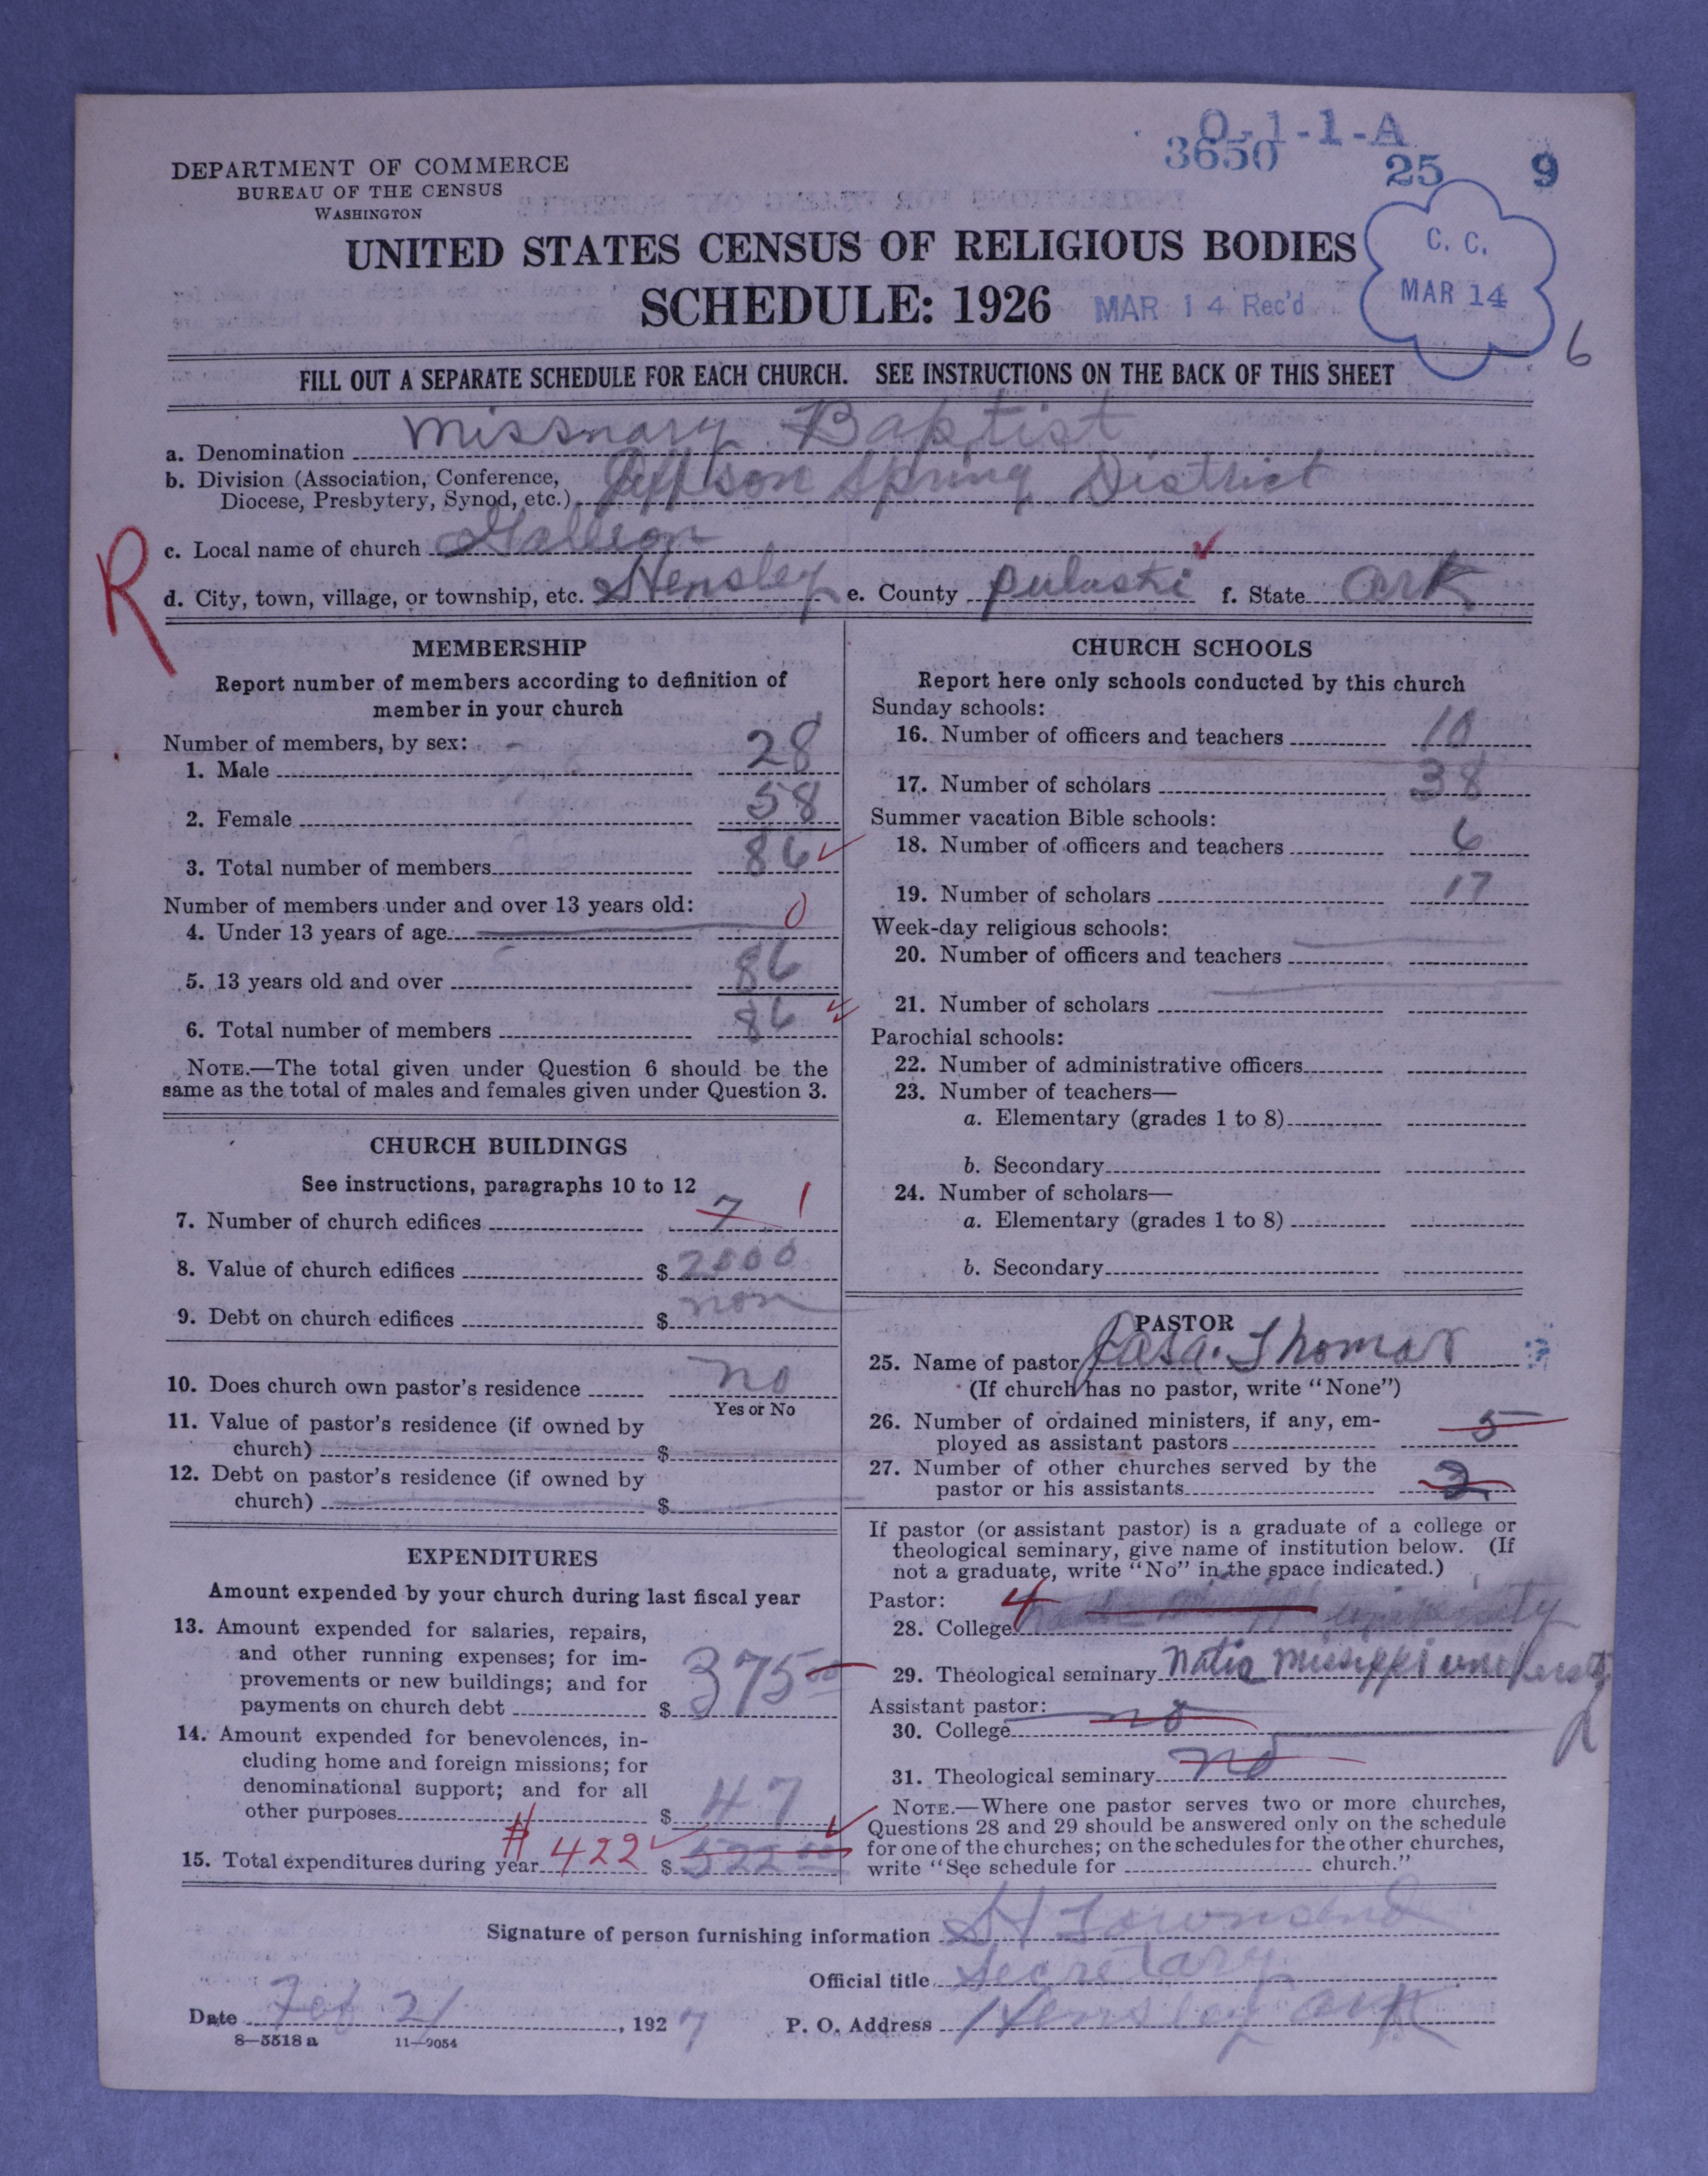 O-1-1-A
3650 25 9
DEPARTMENT OF COMMERCE
BUREAU OF THE CENSUS
WASHINGTON
UNITED STATES CENSUS OF RELIGIOUS BODIES
SCHEDULE: 1926
MAR 14 Rec'd
C. C.
MAR 14
6
FILL OUT A SEPARATE SCHEDULE FOR EACH CHURCH. SEE INSTRUCTIONS ON THE BACK OF THIS SHEET
a. Denomination Missnary Baptist
b. Division (Association, Conference,
Diocese, Presbytery, Synod, etc.) Spring District
R
c. Local name of church
d. City, town, village, or township, etc. Hensley e. County pulaski f. State Ark
MEMBERSHIP
Report number of members according to definition of
member in your church
Number of members, by sex:
1. Male 28
2. Female 58
3. Total number of members 86
Number of members under and over 13 years old:
4. Under 13 years of age 0
5. 13 years old and over 86
6. Total number of members 86
NOTE.—The total given under Question 6 should be the
same as the total of males and females given under Question 3.
CHURCH BUILDINGS
See instructions, paragraphs 10 to 12
7. Number of church edifices 7 1
8. Value of church edifices $ 2000
9. Debt on church edifices $ non
10. Does church own pastor's residence no
Yes or No
11. Value of pastor's residence (if owned by
church) $
12. Debt on pastor's residence (if owned by
church) $
EXPENDITURES
Amount expended by your church during last fiscal year
13. Amount expended for salaries, repairs,
and other running expenses; for im-
provements or new buildings; and for
payments on church debt $ 375 00
14. Amount expended for benevolences, in-
cluding home and foreign missions; for
denominational support; and for all
other purposes $ 47
15. Total expenditures during year # 422 $ 522 00
CHURCH SCHOOLS
Report here only schools conducted by this church
Sunday schools:
16. Number of officers and teachers 10
17. Number of scholars 38
Summer vacation Bible schools:
18. Number of officers and teachers 6
19. Number of scholars 17
Week-day religious schools:
20. Number of officers and teachers
21. Number of scholars
Parochial schools:
22. Number of administrative officers
23. Number of teachers—
a. Elementary (grades 1 to 8)
b. Secondary
24. Number of scholars—
a. Elementary (grades 1 to 8)
b. Secondary
PASTOR
25. Name of pastor Thomas
(If church has no pastor, write "None")
26. Number of ordained ministers, if any, em-
ployed as assistant pastors 5
27. Number of other churches served by the
pastor or his assistants 2
If pastor (or assistant pastor) is a graduate of a college or
theological seminary, give name of institution below. (If
not a graduate, write "No" in the space indicated.)
Pastor: 4
28. College
29. Theological seminary
Assistant pastor:
30. College no
31. Theological seminary no
NOTE.—Where one pastor serves two or more churches,
Questions 28 and 29 should be answered only on the schedule
for one of the churches; on the schedules for the other churches,
write "See schedule for church."
Signature of person furnishing information Townsend
Official title Secretary
Date Feb 21, 1927 P. O. Address Hensley Ark
8—5518 a 11—9054